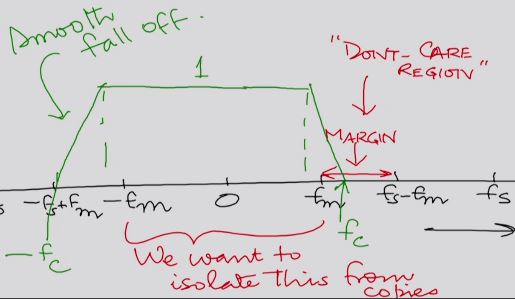 Smooth
fall off.
"DON'T-CARE
REGION"
1
MARGIN
-fs+fm -fm 0 fm fs-fm fs
-fc
fc
We want to
isolate this from
copies